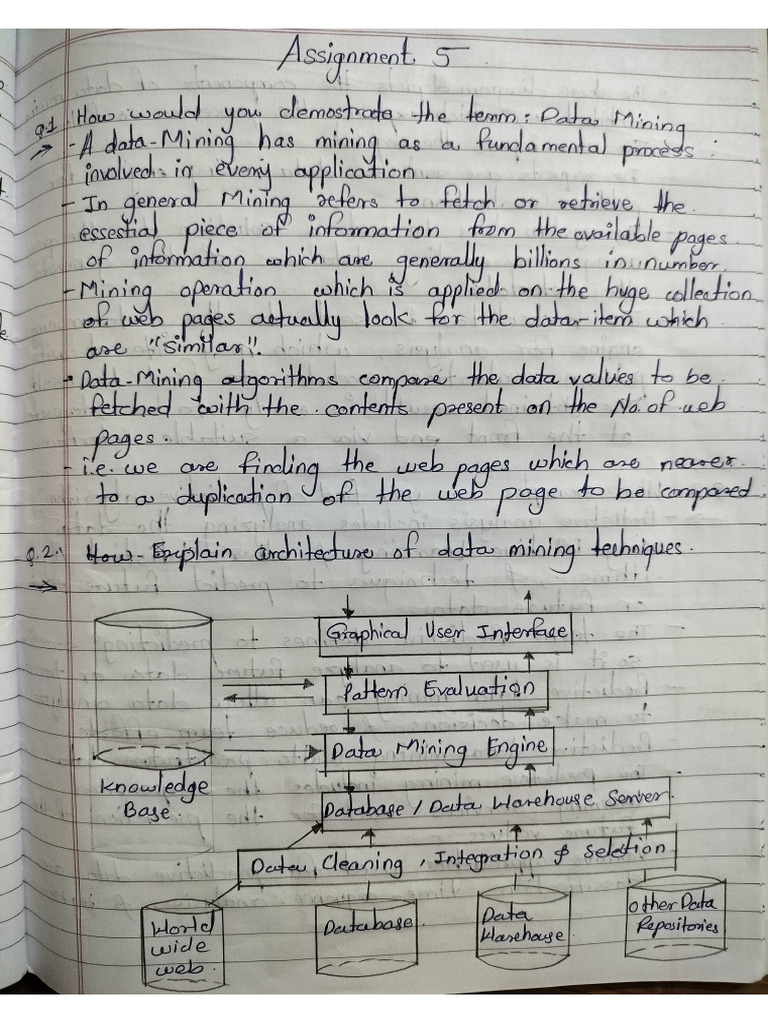 Assignment 5
Q1 How would you demostrate the term: Data Mining
→ - A data-Mining has mining as a fundamental process
involved in every application.
- In general Mining refers to fetch or retrieve the
essestial piece of information from the available pages
of information which are generally billions in number.
- Mining operation which is applied on the huge collection
of web pages actually look for the data-item which
are "similar".
- Data-Mining algorithms compare the data values to be
fetched with the contents present on the No. of web
pages.
- i.e. we are finding the web pages which are nearer
to a duplication of the web page to be compared
Q.2. How Explain architecture of data mining techniques.
→
Graphical User Interface
Pattern Evaluation
Data Mining Engine
Knowledge
Base.
Database / Data Warehouse Server.
Data, Cleaning, Integration & Selection
World
wide
web.
Database.
Data
Warehouse.
Other Data
Repositories.